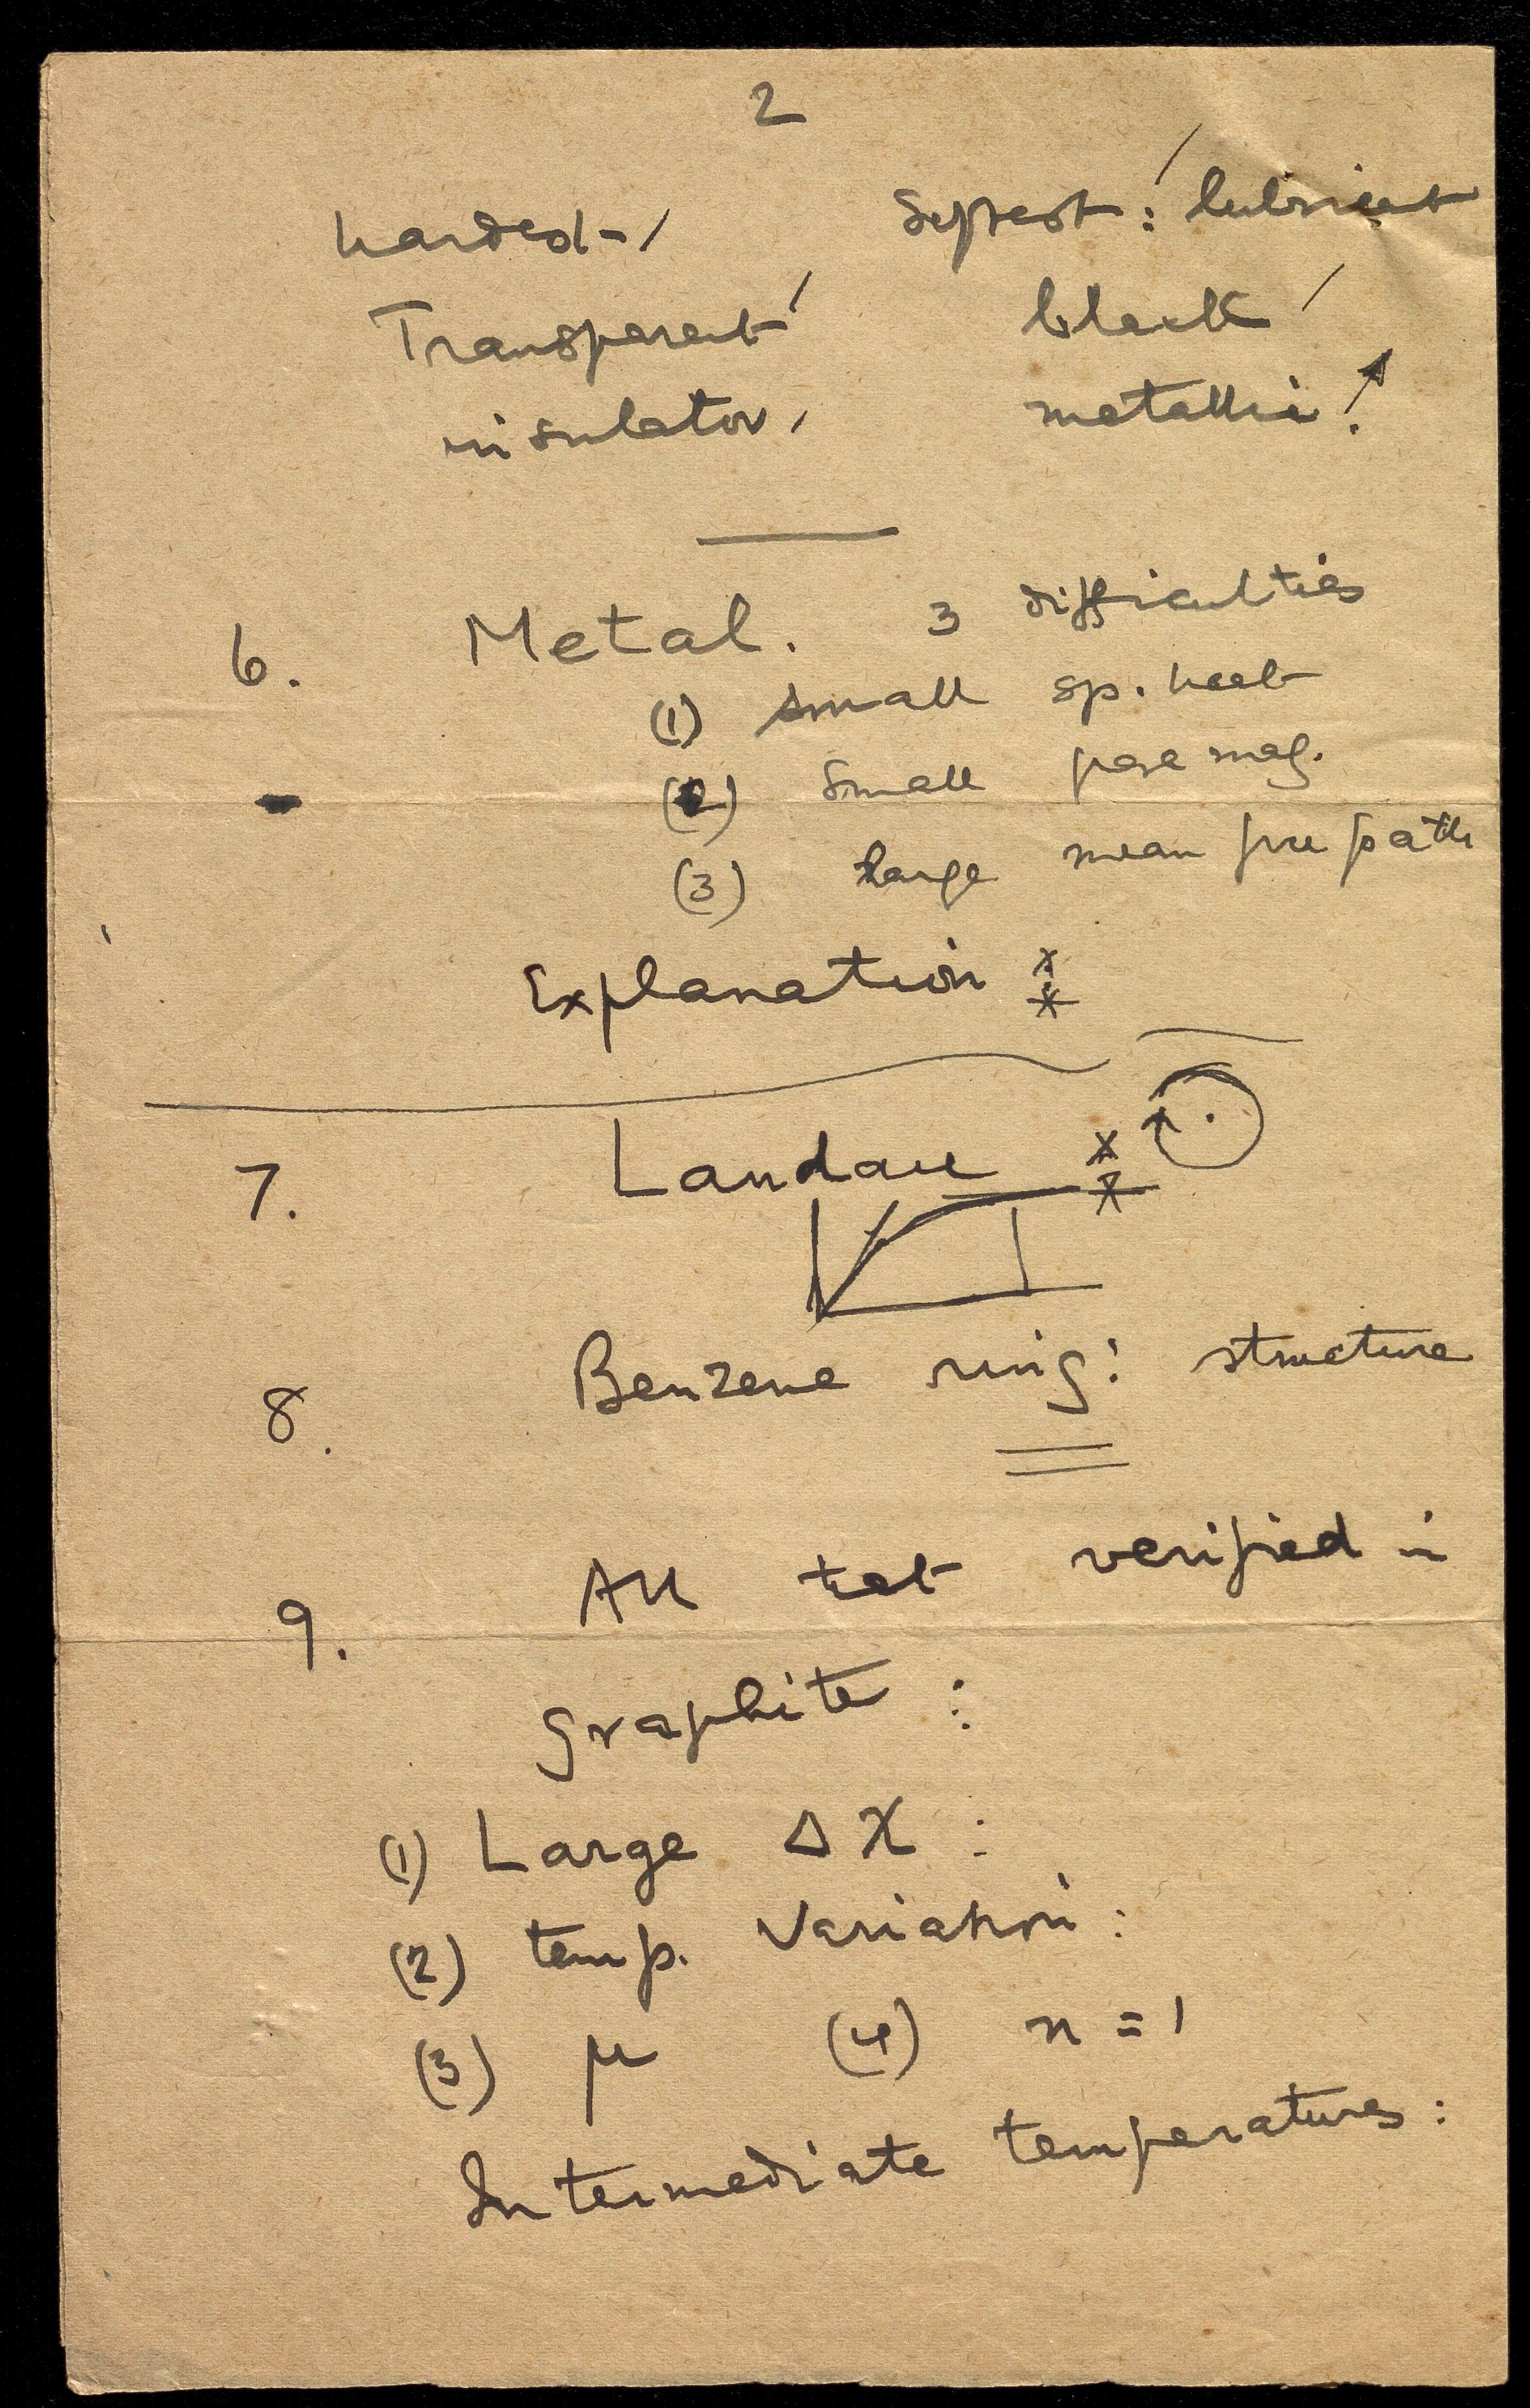 2
hardest - / softest : / lubricant
Transparent / black /
insulator, metallic !
6. Metal. 3 difficulties
(1) small sp. heat
(2) small para mag.
(3) large mean free path
Explanation
7. Landau
8. Benzene ring : structure
9. All verified in
graphite :
(1) Large Δ χ :
(2) temp. variation :
(3) μ (4) n = 1
Intermediate temperatures :